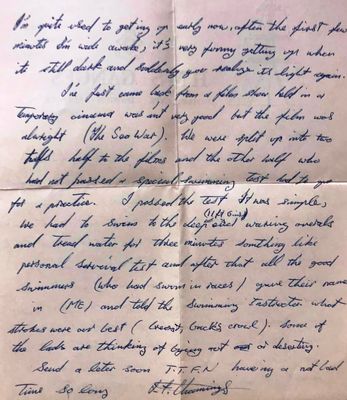 I'm quite used to getting up early now, after the first few
minutes I'm wide awake, it's very funny getting up when
its still dark and suddenly you realize its light again.
I've just came back from a film show held in a
Temporary cinema was not very good but the film was
alwright (The Sea War). We were split up into two
half to the films and the other half who
had not passed a special swimming test had to go
for a practice. I passed the test it was simple,
we had to swim to the deep end waring overals
and tread water for three minutes somthing like
personal survival test and after that all the good
swimmers (who had swum in races) gave their name
in (ME) and told the swimming instructor what
strokes were our best (breast, back, crawl). some of
the lads are thinking of or deserting.
Send a later soon T.T.F.N having a not bad
time so long